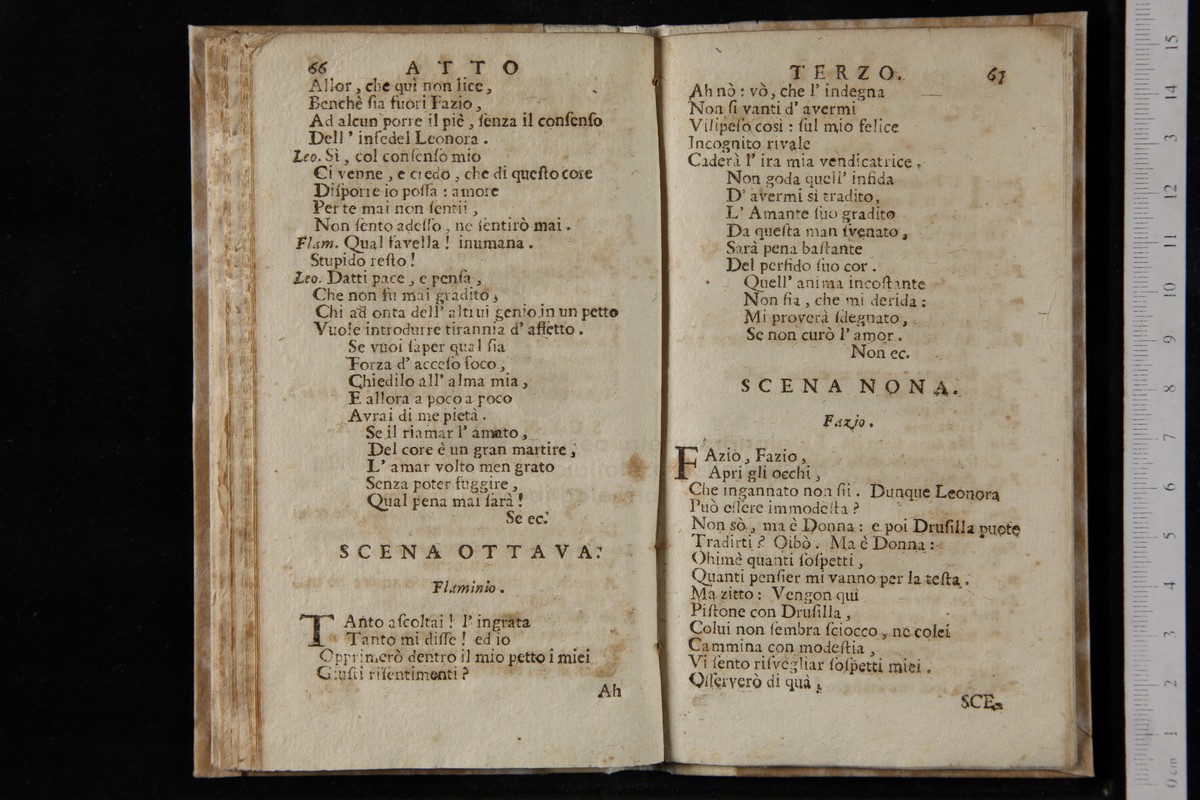 66 ATTO
Allor, che quì non lice,
Benchè ſia fuori Fazio,
Ad alcun porre il piè, ſenza il conſenſo
Dell' infedel Leonora.
Leo. Sì, col conſenſo mio
Ci venne, e credo, che di queſto core
Diſporre io poſſa: amore
Per te mai non ſentii,
Non ſento adeſſo, ne ſentirò mai.
Flam. Qual favella! inumana.
Stupido reſto!
Leo. Datti pace, e penſa,
Che non fu mai gradito,
Chi ad onta dell' altrui genio in un petto
Vuole introdurre tirannia d' affetto.
Se vuoi ſaper qual ſia
Forza d' acceſo foco,
Chiedilo all' alma mia,
E allora a poco a poco
Avrai di me pietà.
Se il riamar l' amato,
Del core è un gran martire,
L' amar volto men grato
Senza poter fuggire,
Qual pena mai ſarà!
Se ec.
SCENA OTTAVA.
Flaminio.
TAnto aſcoltai! l' ingrata
Tanto mi diſſe! ed io
Opprimerò dentro il mio petto i miei
Giuſti riſentimenti?
Ah
TERZO. 67
Ah nò: vò, che l' indegna
Non ſi vanti d' avermi
Vilipeſo cosi: ſul mio felice
Incognito rivale
Caderà l' ira mia vendicatrice.
Non goda quell' infida
D' avermi si tradito,
L' Amante ſuo gradito
Da queſta man ſvenato,
Sarà pena baſtante
Del perfido ſuo cor.
Quell' anima incoſtante
Non fia, che mi derida:
Mi proverà ſdegnato,
Se non curò l' amor.
Non ec.
SCENA NONA.
Fazio.
FAzio, Fazio,
Apri gli occhi,
Che ingannato non ſii. Dunque Leonora
Può eſſere immodeſta?
Non sò, ma è Donna: e poi Druſilla puote
Tradirti? Oibò. Ma è Donna:
Ohimè quanti ſoſpetti,
Quanti penſier mi vanno per la teſta.
Ma zitto: Vengon quì
Piſtone con Druſilla,
Colui non ſembra ſciocco, ne colei
Cammina con modeſtia,
Vi ſento riſvegliar ſoſpetti miei.
Oſſerverò di quà.
SCE-
0 cm 1 2 3 4 5 6 7 8 9 10 11 12 13 14 15